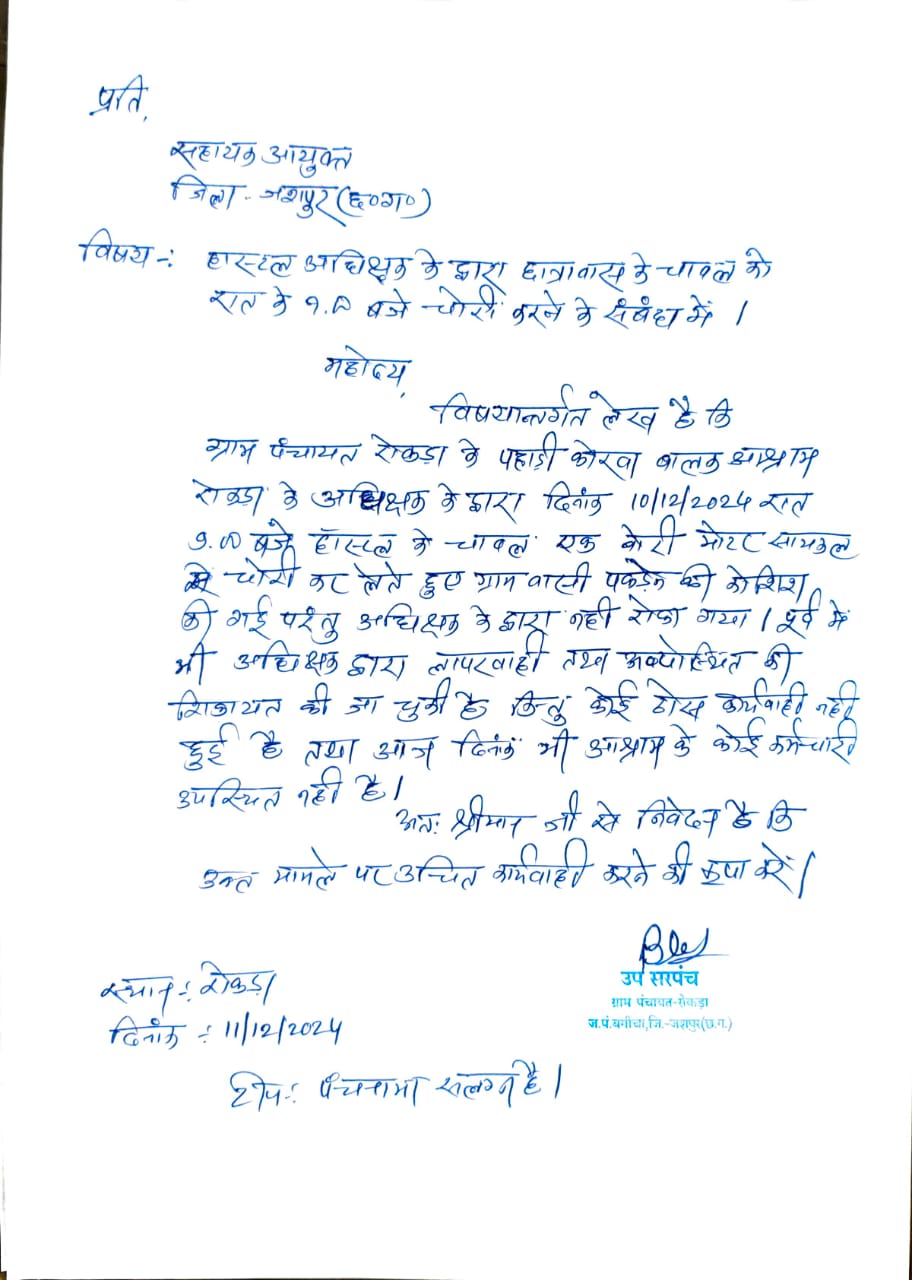 प्रति,
सहायक आयुक्त
जिला - जशपुर (छ०ग०)
विषय -: हास्टल अधिक्षक के द्वारा छात्रावास के चावल को
रात के 9.00 बजे चोरी करने के संबंध में ।
महोदय,
विषयान्तर्गत लेख है कि
ग्राम पंचायत रोकड़ा के पहाडी कोरवा बालक आश्रम
रोकडा के अधिक्षक के द्वारा दिनांक 10/12/2024 रात
9.00 बजे हॉस्टल के चावल एक केरी मोटर सायकल
से चोरी कर लेते हुए ग्रामवासी पकड़ने की कोशिश
की गई परंतु अधिक्षक के द्वारा नही रोका गया । पूर्व में
भी अधिक्षक द्वारा लापरवाही तथा की
शिकायत की जा चुकी है किन्तु कोई ठोस कार्यवाही नही
हुई है तथा आज दिनांक भी आश्रम के कोई कर्मचारी
उपस्थित नही है।
अतः श्रीमान जी से निवेदन है कि
उक्त मामले पर उचित कार्यवाही करने की कृपा करें।
उप सरपंच
ग्राम पंचायत-रोकड़ा
ज.पं.बगीचा,जि.-जशपुर(छ.ग.)
स्थान -: रोकड़ा
दिनांक -: 11/12/2024
टीप -: पंचनामा सलग्न है।